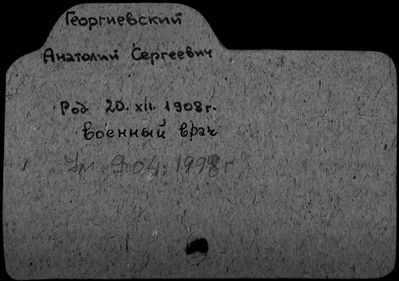 Георгиевский
Анатолий Сергеевич
Род 20. XII. 1908г.
Военный врач
Ум. 9.04.1998г